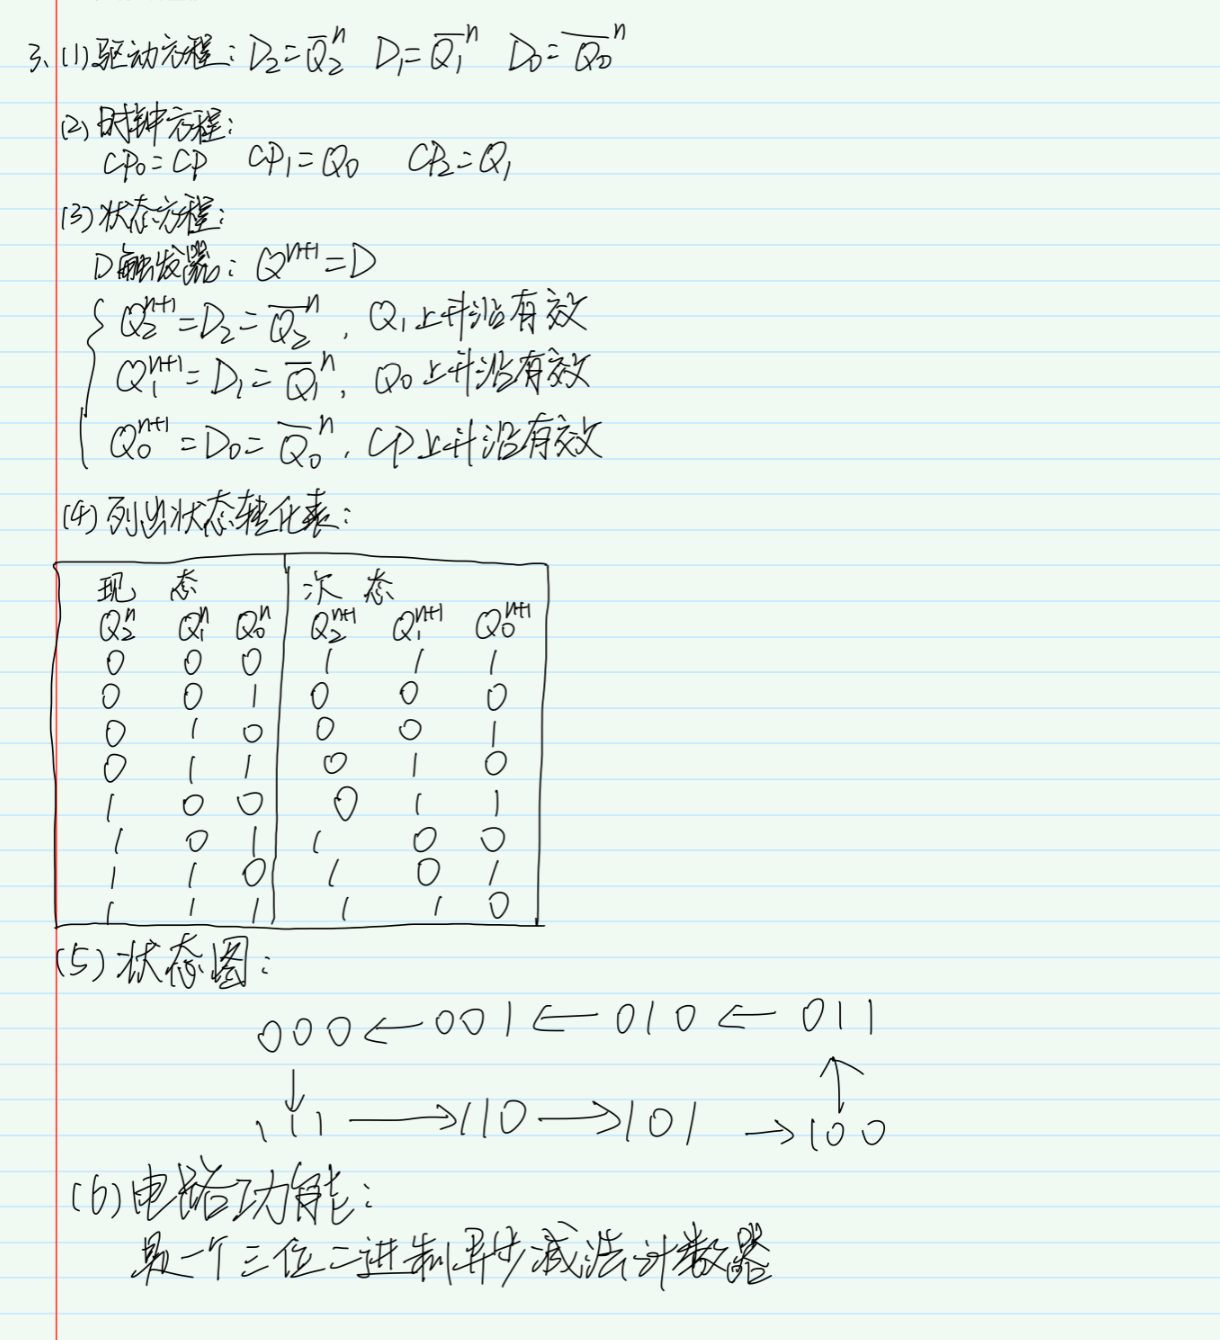 3、(1)驱动方程：D₂=Q̅₂ⁿ D₁=Q̅₁ⁿ D₀=Q̅₀ⁿ
(2)时钟方程：
CP₀=CP CP₁=Q₀ CP₂=Q₁
(3)状态方程：
D触发器：Qⁿ⁺¹=D
Q₂ⁿ⁺¹=D₂=Q̅₂ⁿ，Q₁上升沿有效
Q₁ⁿ⁺¹=D₁=Q̅₁ⁿ，Q₀上升沿有效
Q₀ⁿ⁺¹=D₀=Q̅₀ⁿ，CP上升沿有效
(4)列出状态转化表：
现 态 次 态
Q₂ⁿ Q₁ⁿ Q₀ⁿ Q₂ⁿ⁺¹ Q₁ⁿ⁺¹ Q₀ⁿ⁺¹
0 0 0 1 1 1
0 0 1 0 0 0
0 1 0 0 0 1
0 1 1 0 1 0
1 0 0 0 1 1
1 0 1 1 0 0
1 1 0 1 0 1
1 1 1 1 1 0
(5)状态图：
000←001←010←011
↓ ↑
111→110→101→100
(6)电路功能：
是一个三位二进制异步减法计数器